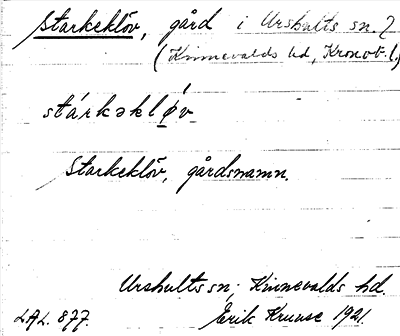 Starkeklöv, gård i Urshults sn.?
(Kinnevalds hd, Kronob. l.)
stárkəkløv
Starkeklöv, gårdsnamn.
Urshults sn, Kinnevalds hd.
LAL. 877. Erik Kruuse 1921